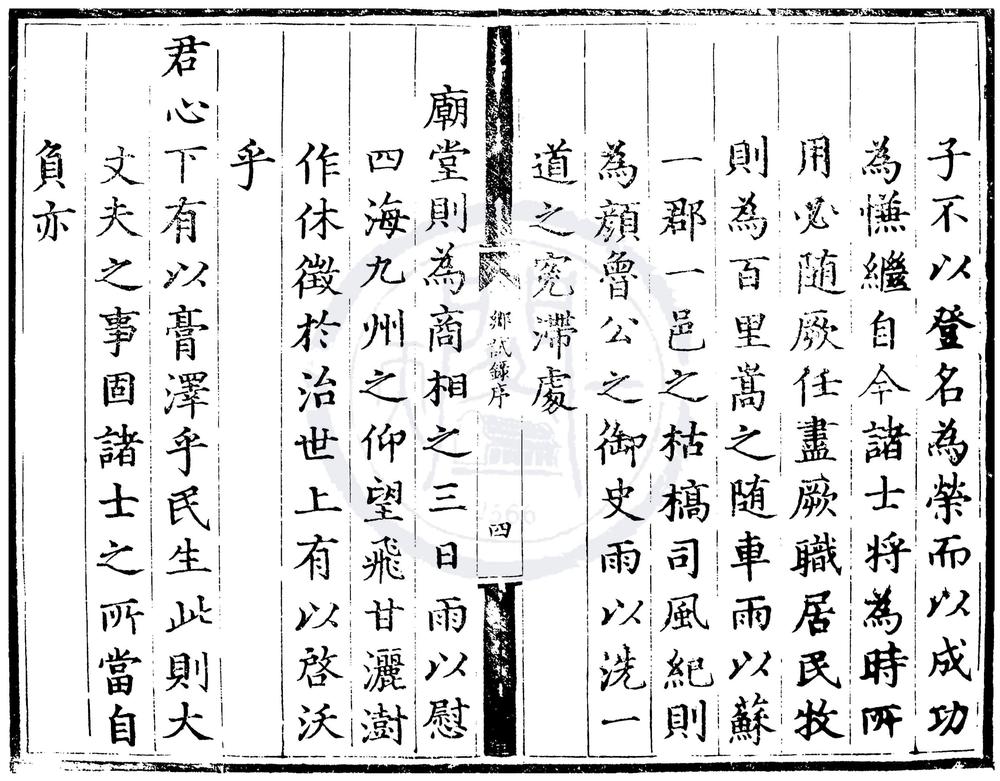 子不以登名為榮而以成功
為慊繼自今諸士将為時所
用必随厥任盡厥職居民牧
則為百里嵩之随車雨以蘇
一郡一邑之枯槁司風紀則
為顔魯公之御史雨以洗一
道之寃滯處
鄉試錄序
四
廟堂則為商相之三日雨以慰
四海九州之仰望飛甘灑澍
作休徵於治世上有以啓沃
君心下有以膏澤乎民生此則大
丈夫之事固諸士之所當自
負亦